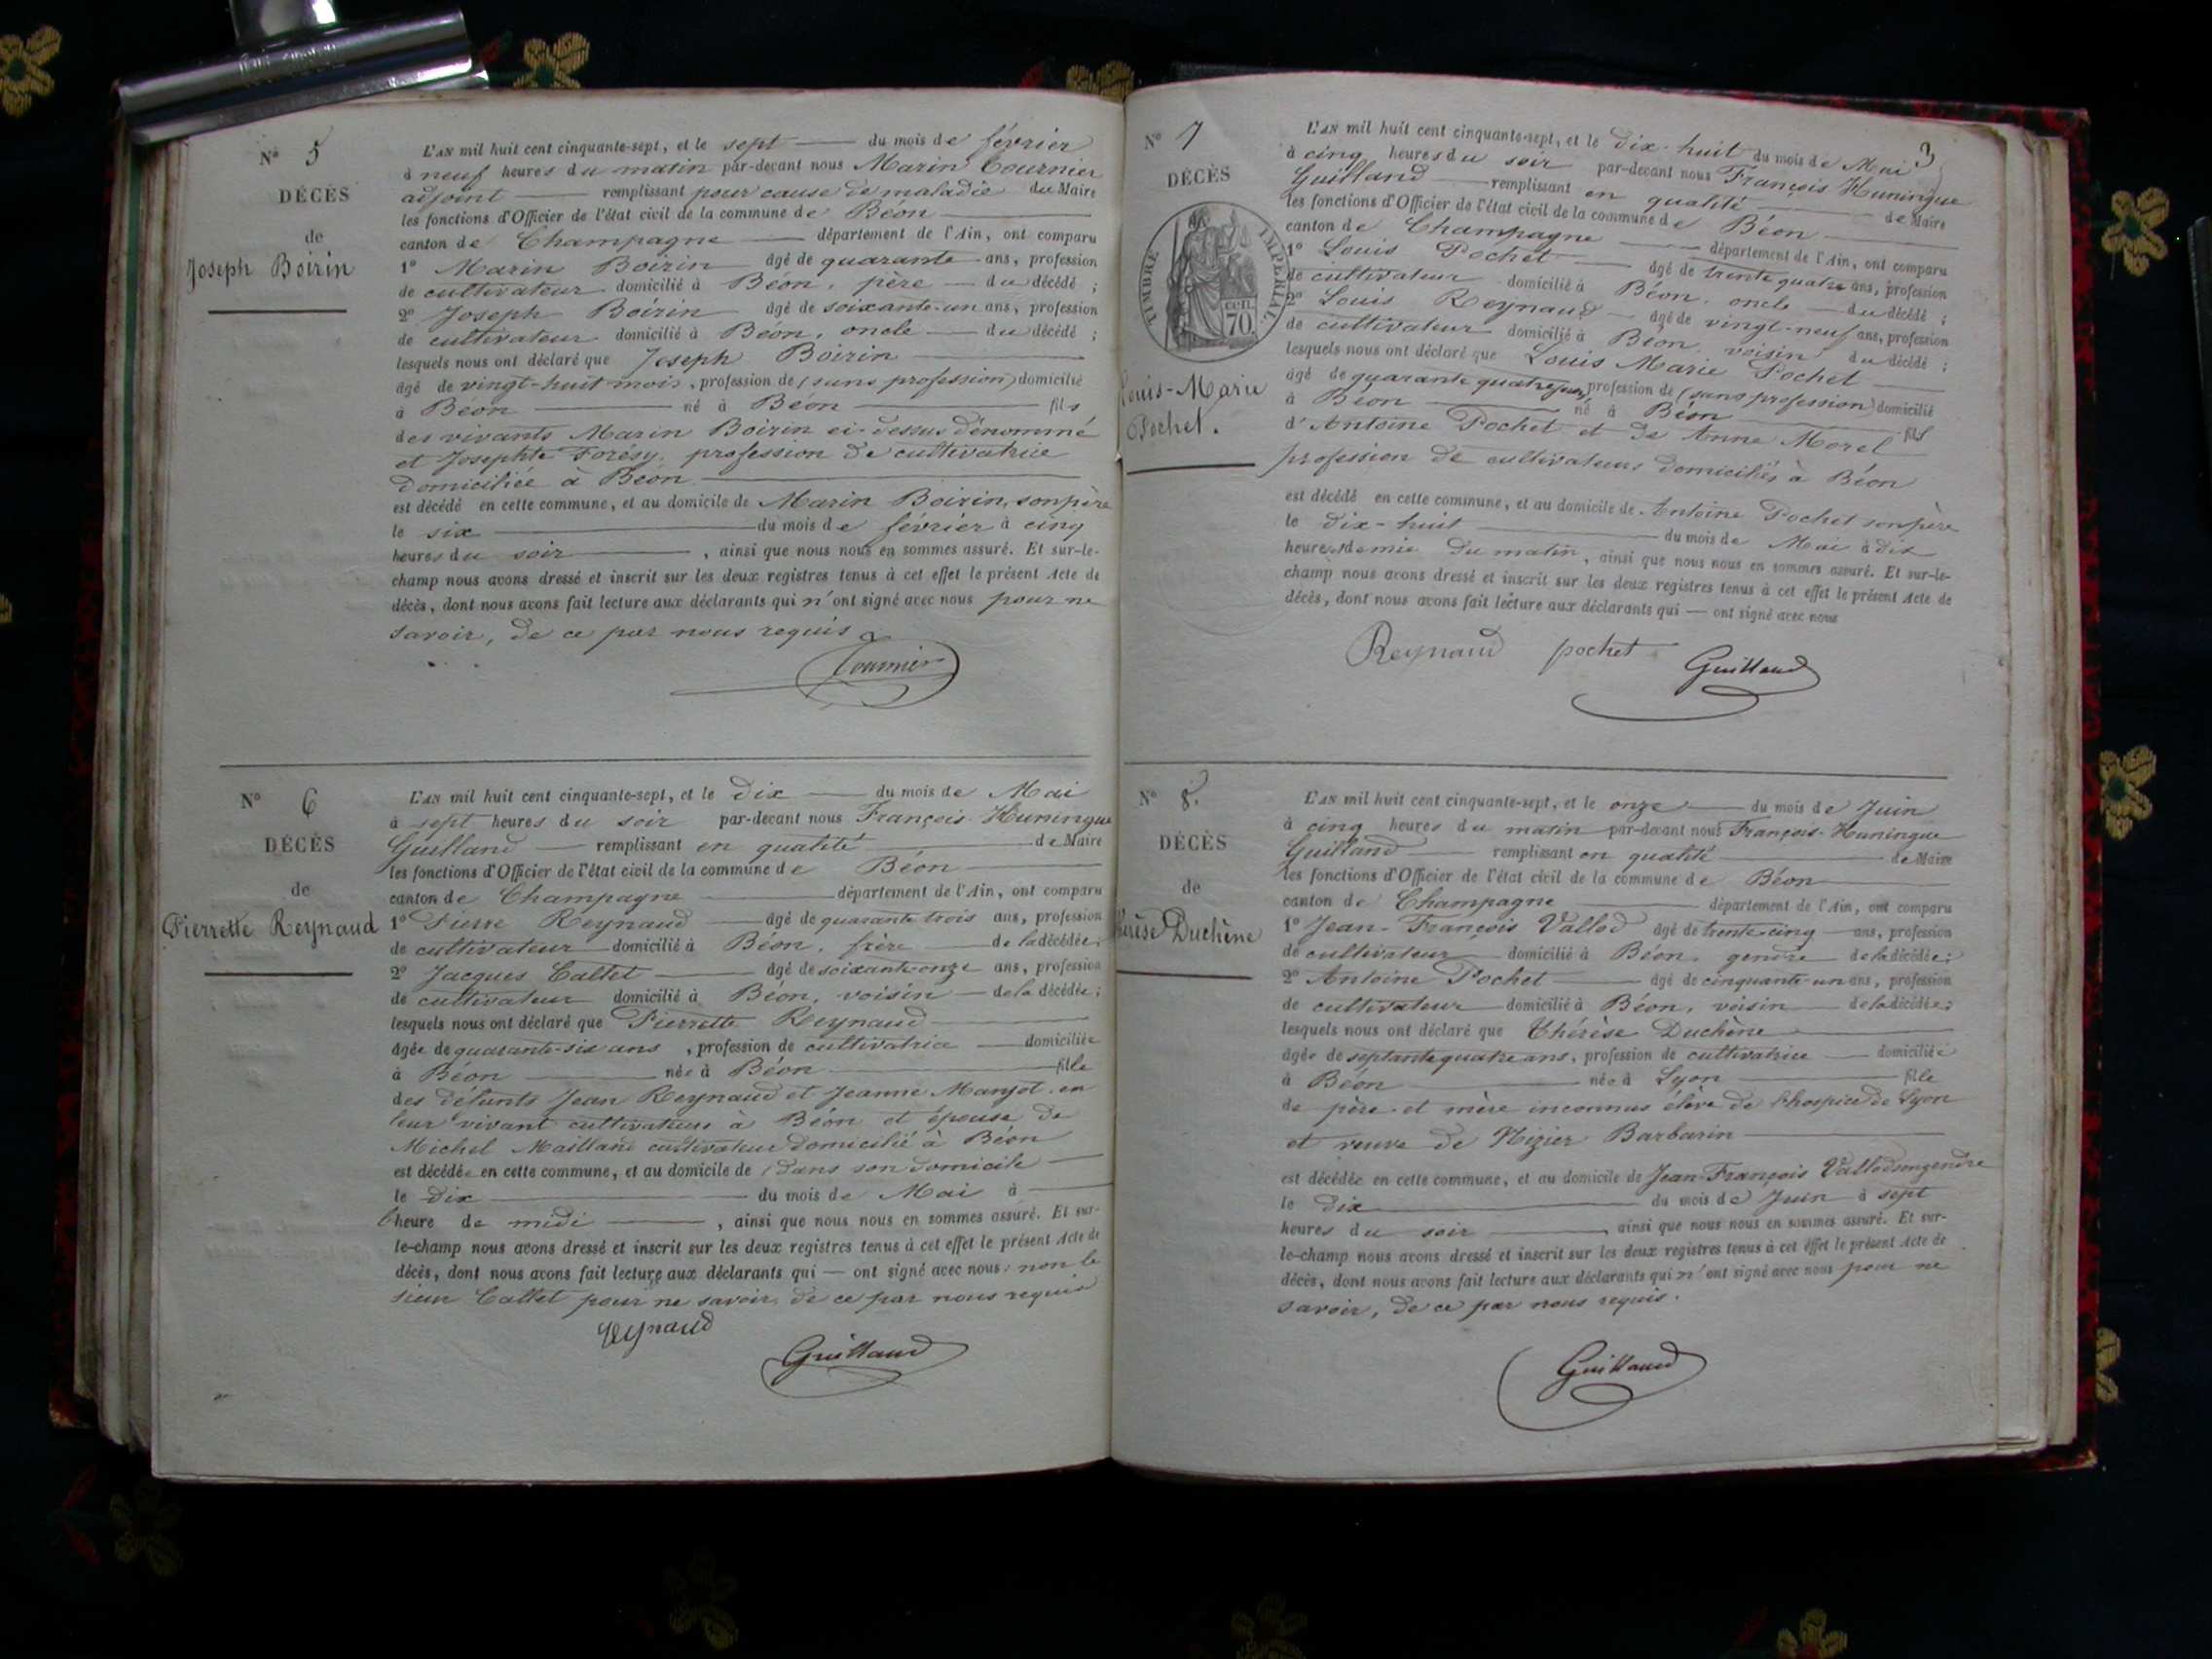 N° 5
DÉCÈS
de
Joseph Boirin
L'AN mil huit cent cinquante-sept, et le sept du mois de février
à neuf heures du matin par-devant nous Marin Tournier
adjoint remplissant pour cause de maladie du Maire
les fonctions d'Officier de l'état civil de la commune de Béon
canton de Champagne département de l'Ain, ont comparu
1° Marin Boirin âgé de quarante ans, profession
de cultivateur domicilié à Béon, père du décédé ;
2° Joseph Boirin âgé de soixante-un ans, profession
de cultivateur domicilié à Béon, oncle du décédé ;
lesquels nous ont déclaré que Joseph Boirin
âgé de vingt-huit mois, profession de (sans profession) domicilié
à Béon né à Béon fils
des vivants Marin Boirin ci-dessus dénommé
et Josephte profession de cultivatrice
domiciliée à Béon
est décédé en cette commune, et au domicile de Marin Boirin, son père
le six du mois de février à cinq
heures du soir, ainsi que nous nous en sommes assuré. Et sur-le-
champ nous avons dressé et inscrit sur les deux registres tenus à cet effet le présent Acte de
décès, dont nous avons fait lecture aux déclarants qui n'ont signé avec nous pour ne
savoir, de ce par nous requis
Tournier
N° 6
DÉCÈS
de
Pierrette Reynaud
L'AN mil huit cent cinquante-sept, et le dix du mois de Mai
à sept heures du soir par-devant nous François-Huningue
Guilland remplissant en qualité de Maire
les fonctions d'Officier de l'état civil de la commune de Béon
canton de Champagne département de l'Ain, ont comparu
1° Pierre Reynaud âgé de quarante trois ans, profession
de cultivateur domicilié à Béon, frère de la décédée;
2° Jacques Callet âgé de soixante-onze ans, profession
de cultivateur domicilié à Béon, voisin de la décédée;
lesquels nous ont déclaré que Pierrette Reynaud
âgée de quarante-six ans, profession de cultivatrice domiciliée
à Béon née à Béon fille
des défunts Jean Reynaud et Jeanne Manjot en
leur vivant cultivateurs à Béon et épouse de
MichelAilland cultivateur domicilié à Béon
est décédée en cette commune, et au domicile de (dans son domicile
le dix du mois de Mai à
l'heure de midi, ainsi que nous nous en sommes assuré. Et sur-
le-champ nous avons dressé et inscrit sur les deux registres tenus à cet effet le présent Acte de
décès, dont nous avons fait lecture aux déclarants qui — ont signé avec nous : non le
sieur Callet pour ne savoir, de ce par nous requis
Reynaud
Guilland
3
N° 7
DÉCÈS
TIMBRE IMPERIAL
cen. 70.
Louis-Marie
Pochet.
L'AN mil huit cent cinquante-sept, et le dix-huit du mois de Mai
à cinq heures du soir par-devant nous François Huningue
Guilland remplissant en qualité de Maire
les fonctions d'Officier de l'état civil de la commune de Béon
canton de Champagne département de l'Ain, ont comparu
1° Louis Pochet âgé de trente quatre ans, profession
de cultivateur domicilié à Béon, oncle du décédé ;
2° Louis Reynaud âgé de vingt-neuf ans, profession
de cultivateur domicilié à Béon, voisin du décédé ;
lesquels nous ont déclaré que Louis Marie Pochet
âgé de quarante quatre jours, profession de (sans profession) domicilié
à Béon né à Béon fils
d'Antoine Pochet et de Anne Morel
profession de cultivateurs domiciliés à Béon
est décédé en cette commune, et au domicile de Antoine Pochet son père
le dix-huit du mois de Mai à dix
heures demie du matin, ainsi que nous nous en sommes assuré. Et sur-le-
champ nous avons dressé et inscrit sur les deux registres tenus à cet effet le présent Acte de
décès, dont nous avons fait lecture aux déclarants qui — ont signé avec nous
Reynaud pochet Guilland
N° 8.
DÉCÈS
de
Thérèse Duchêne
L'AN mil huit cent cinquante-sept, et le onze du mois de Juin
à cinq heures du matin par-devant nous François-Huningue
Guilland remplissant en qualité de Maire
les fonctions d'Officier de l'état civil de la commune de Béon
canton de Champagne département de l'Ain, ont comparu
1° Jean-François Vallod âgé de trente-cinq ans, profession
de cultivateur domicilié à Béon, gendre de la décédée;
2° Antoine Pochet âgé de cinquante-un ans, profession
de cultivateur domicilié à Béon, voisin de la décédée;
lesquels nous ont déclaré que Thérèse Duchêne
âgée de septante quatre ans, profession de cultivatrice domiciliée
à Béon née à Lyon fille
de père et mère inconnus élève de l'hospice de Lyon
et veuve de Nizier Barbarin
est décédée en cette commune, et au domicile de Jean-François Vallod son gendre
le dix du mois de Juin à sept
heures du soir, ainsi que nous nous en sommes assuré. Et sur-
le-champ nous avons dressé et inscrit sur les deux registres tenus à cet effet le présent Acte de
décès, dont nous avons fait lecture aux déclarants qui n'ont signé avec nous pour ne
savoir, de ce par nous requis.
Guilland